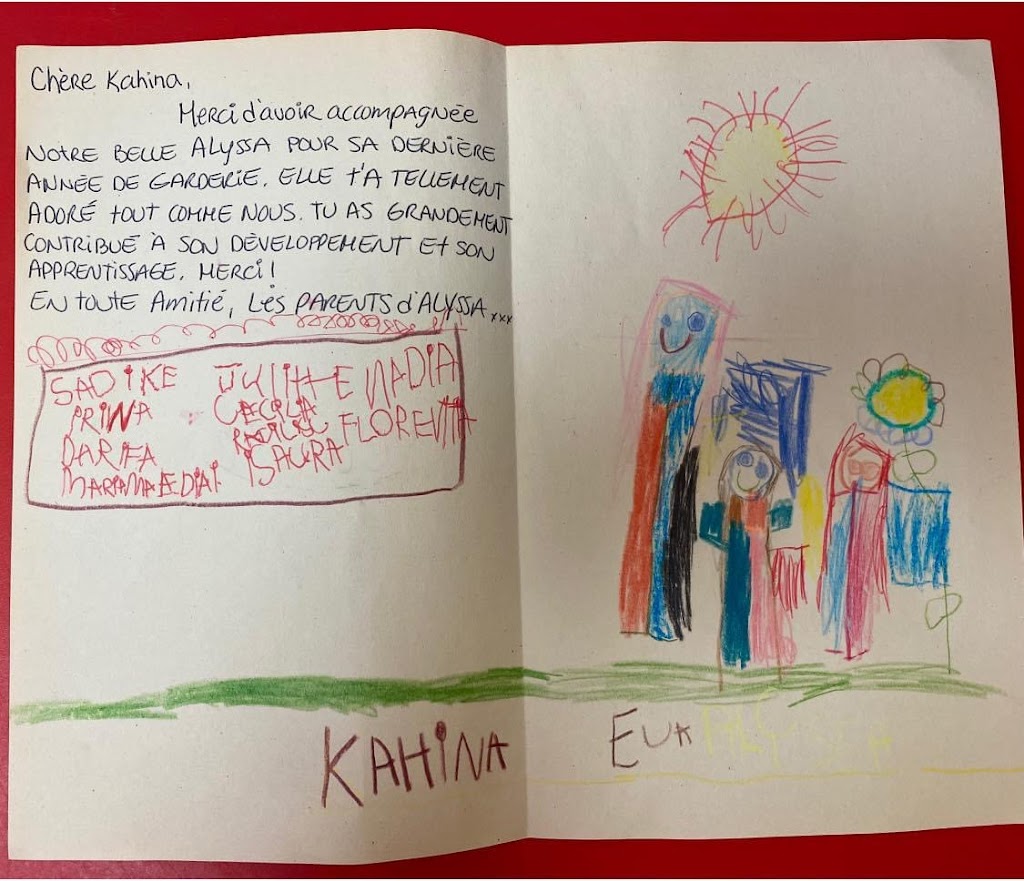 Chère Kahina,
Merci d'avoir accompagnée
NOTRE BELLE ALYSSA POUR SA DERNIÈRE
ANNÉE DE GARDERIE. ELLE t'A TELLEMENT
ADORÉ tout COMME NOUS. TU AS GRANDEMENT
CONTRIBUÉ À SON DÉVELOPPEMENT Et SON
APPRENTISSAGE. MERCI!
EN toutE Amitié, LES PARENTS d'ALYSSA xxx
SADIKE JULITTE NADIA
PRIWA CECILIA FLORENTIA
DARIFA ISAURA
MARIAMA
KAHINA EVA